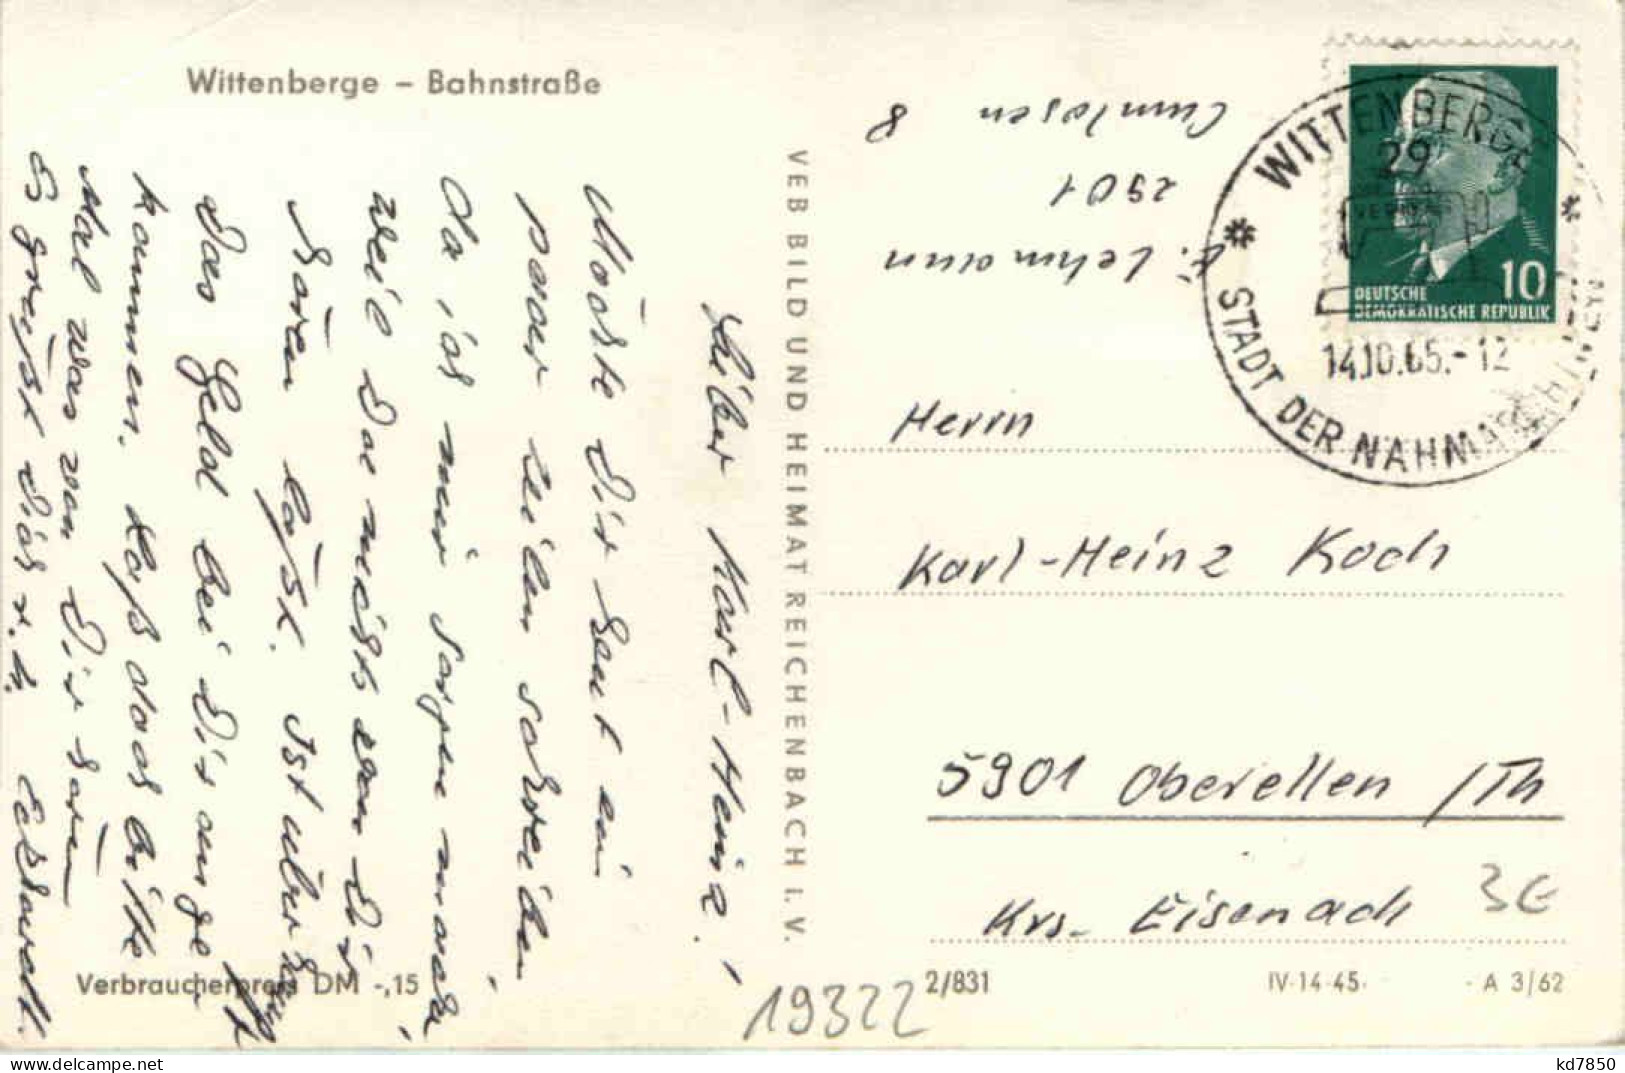 Wittenberge – Bahnstraße
Lieber Karl-Heinz!
Möchte Dir heut ein
paar Zeilen schreiben,
da ich mir Sorgen mache,
weil Du nichts von Dir
hören läßt. Ist überhaupt
das Geld bei Dir ange-
kommen. Laß doch bitte
Mal was von Dir hören
Es grüßt Dich r. h.
VEB BILD UND HEIMAT REICHENBACH I. V.
Lehmann
2901
Cumlosen 8
WITTENBERGE
29
14.10.65.-12
STADT DER NÄHMASCHINEN
10
DEUTSCHE
DEMOKRATISCHE REPUBLIK
Herrn
Karl-Heinz Koch
5901 Oberellen /Th
Krs. Eisenach
3€
Verbraucherpreis DM -,15
19322
2/831
IV-14-45
A 3/62
kd7850